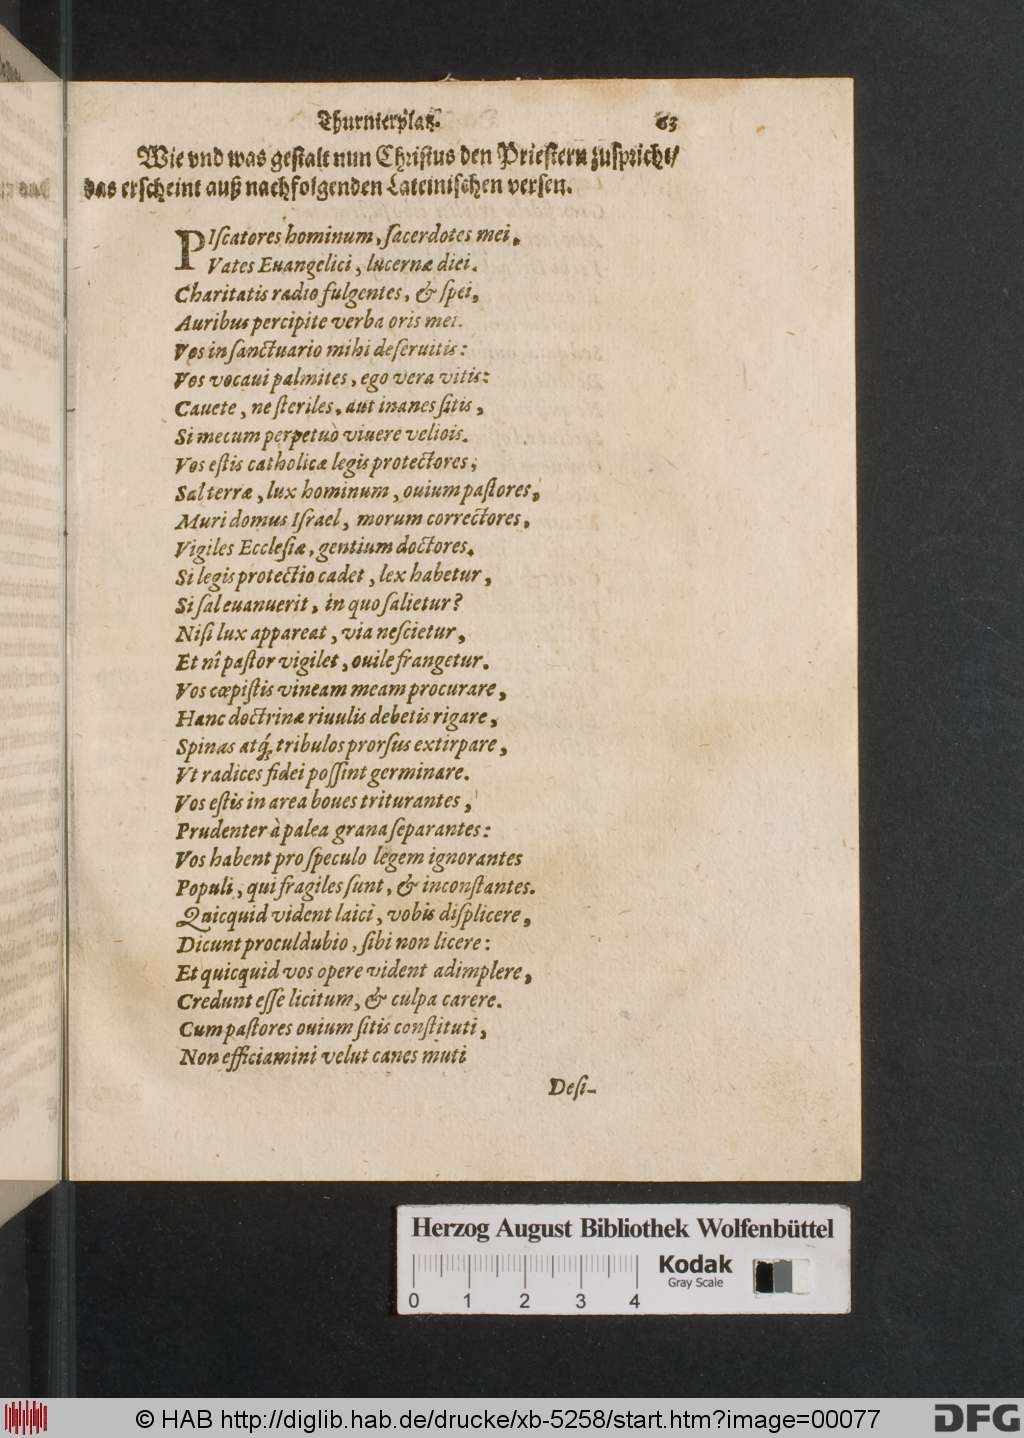 Thurnierplatz. 63
Wie vnd was gestalt nun Christus den Priestern zuspricht/
das erscheint auß nachfolgenden Lateinischen versen.
PIſcatores hominum, ſacerdotes mei,
Vates Euangelici, lucernæ diei.
Charitatis radio fulgentes, & ſpei,
Auribus percipite verba oris mei.
Vos in ſanctuario mihi deſeruitis:
Vos vocaui palmites, ego vera vitis:
Cauete, ne ſteriles, aut inanes ſitis,
Si mecum perpetuò viuere velitis.
Vos eſtis catholicæ legis protectores,
Sal terræ, lux hominum, ouium paſtores,
Muri domus Iſrael, morum correctores,
Vigiles Eccleſiæ, gentium doctores.
Si legis protectio cadet, lex habetur,
Si ſal euanuerit, in quo ſalietur?
Niſi lux appareat, via neſcietur,
Et nî paſtor vigilet, ouile frangetur.
Vos cœpiſtis vineam meam procurare,
Hanc doctrinæ riuulis debetis rigare,
Spinas atq́; tribulos prorſus extirpare,
Vt radices fidei poſſint germinare.
Vos eſtis in area boues triturantes,
Prudenter à palea grana ſeparantes:
Vos habent pro ſpeculo legem ignorantes
Populi, qui fragiles ſunt, & inconſtantes.
Quicquid vident laici, vobis diſplicere,
Dicunt proculdubio, ſibi non licere:
Et quicquid vos opere vident adimplere,
Credunt eſſe licitum, & culpa carere.
Cum paſtores ouium ſitis conſtituti,
Non efficiamini velut canes muti
Deſi-
Herzog August Bibliothek Wolfenbüttel
Kodak
Gray Scale
0 1 2 3 4
© HAB http://diglib.hab.de/drucke/xb-5258/start.htm?image=00077
DFG